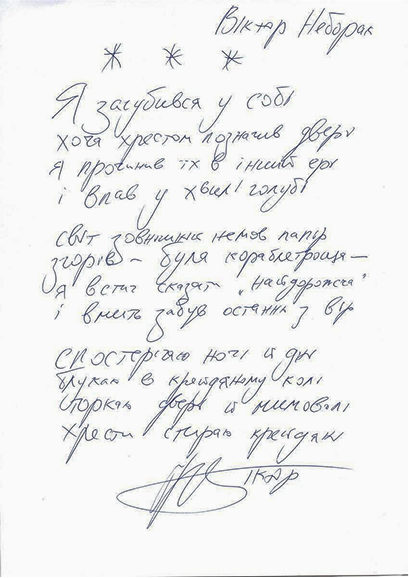 Віктор Неборак
* * *
Я загубився у собі
хоча хрестом позначив двері
я прочинив їх в іншій ері
і впав у хвилі голубі
світ зовнішній немов папір
згорів – була кораблетроща –
я встиг сказати „найдорожча"
і вмить забув останнє з вір
спостерігаю ночі й дні
блукаю в крейдяному колі
торкаю двері й мимоволі
хрести стираю крейдяні
Віктор